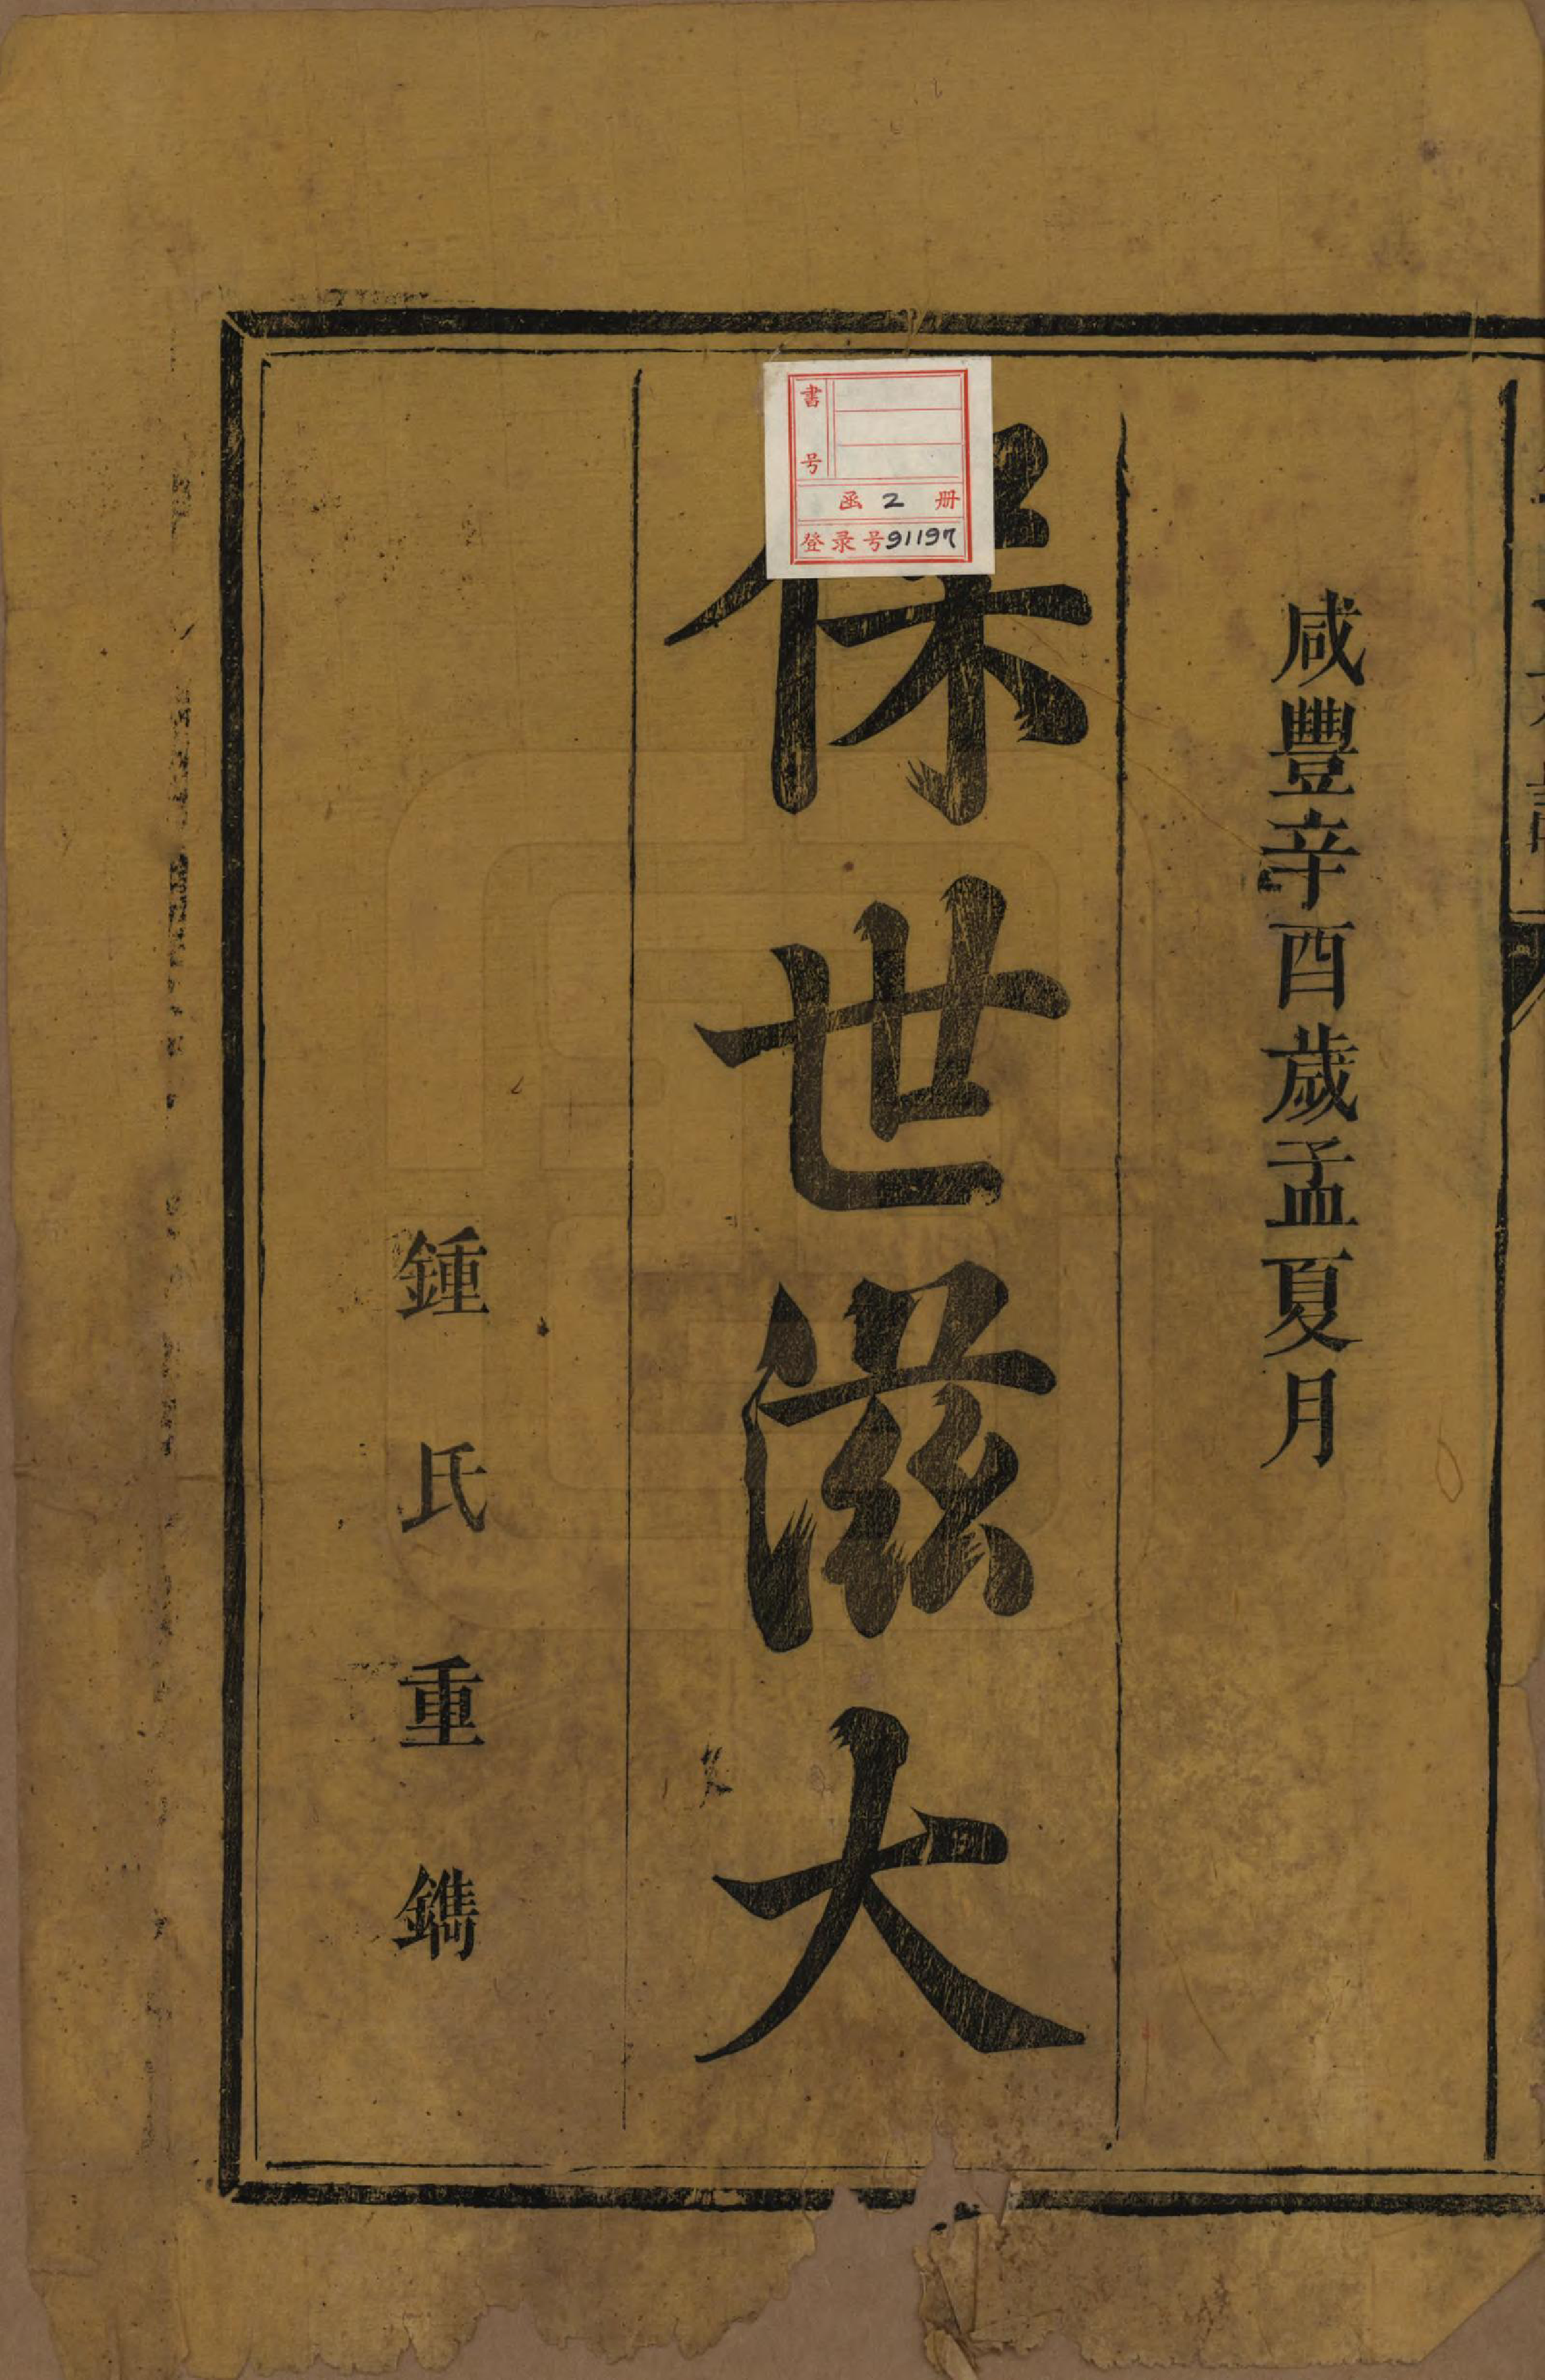 咸豐辛酉歲孟夏月
保世滋大
鍾氏重鐫
書号
函 2 册
登录号91197